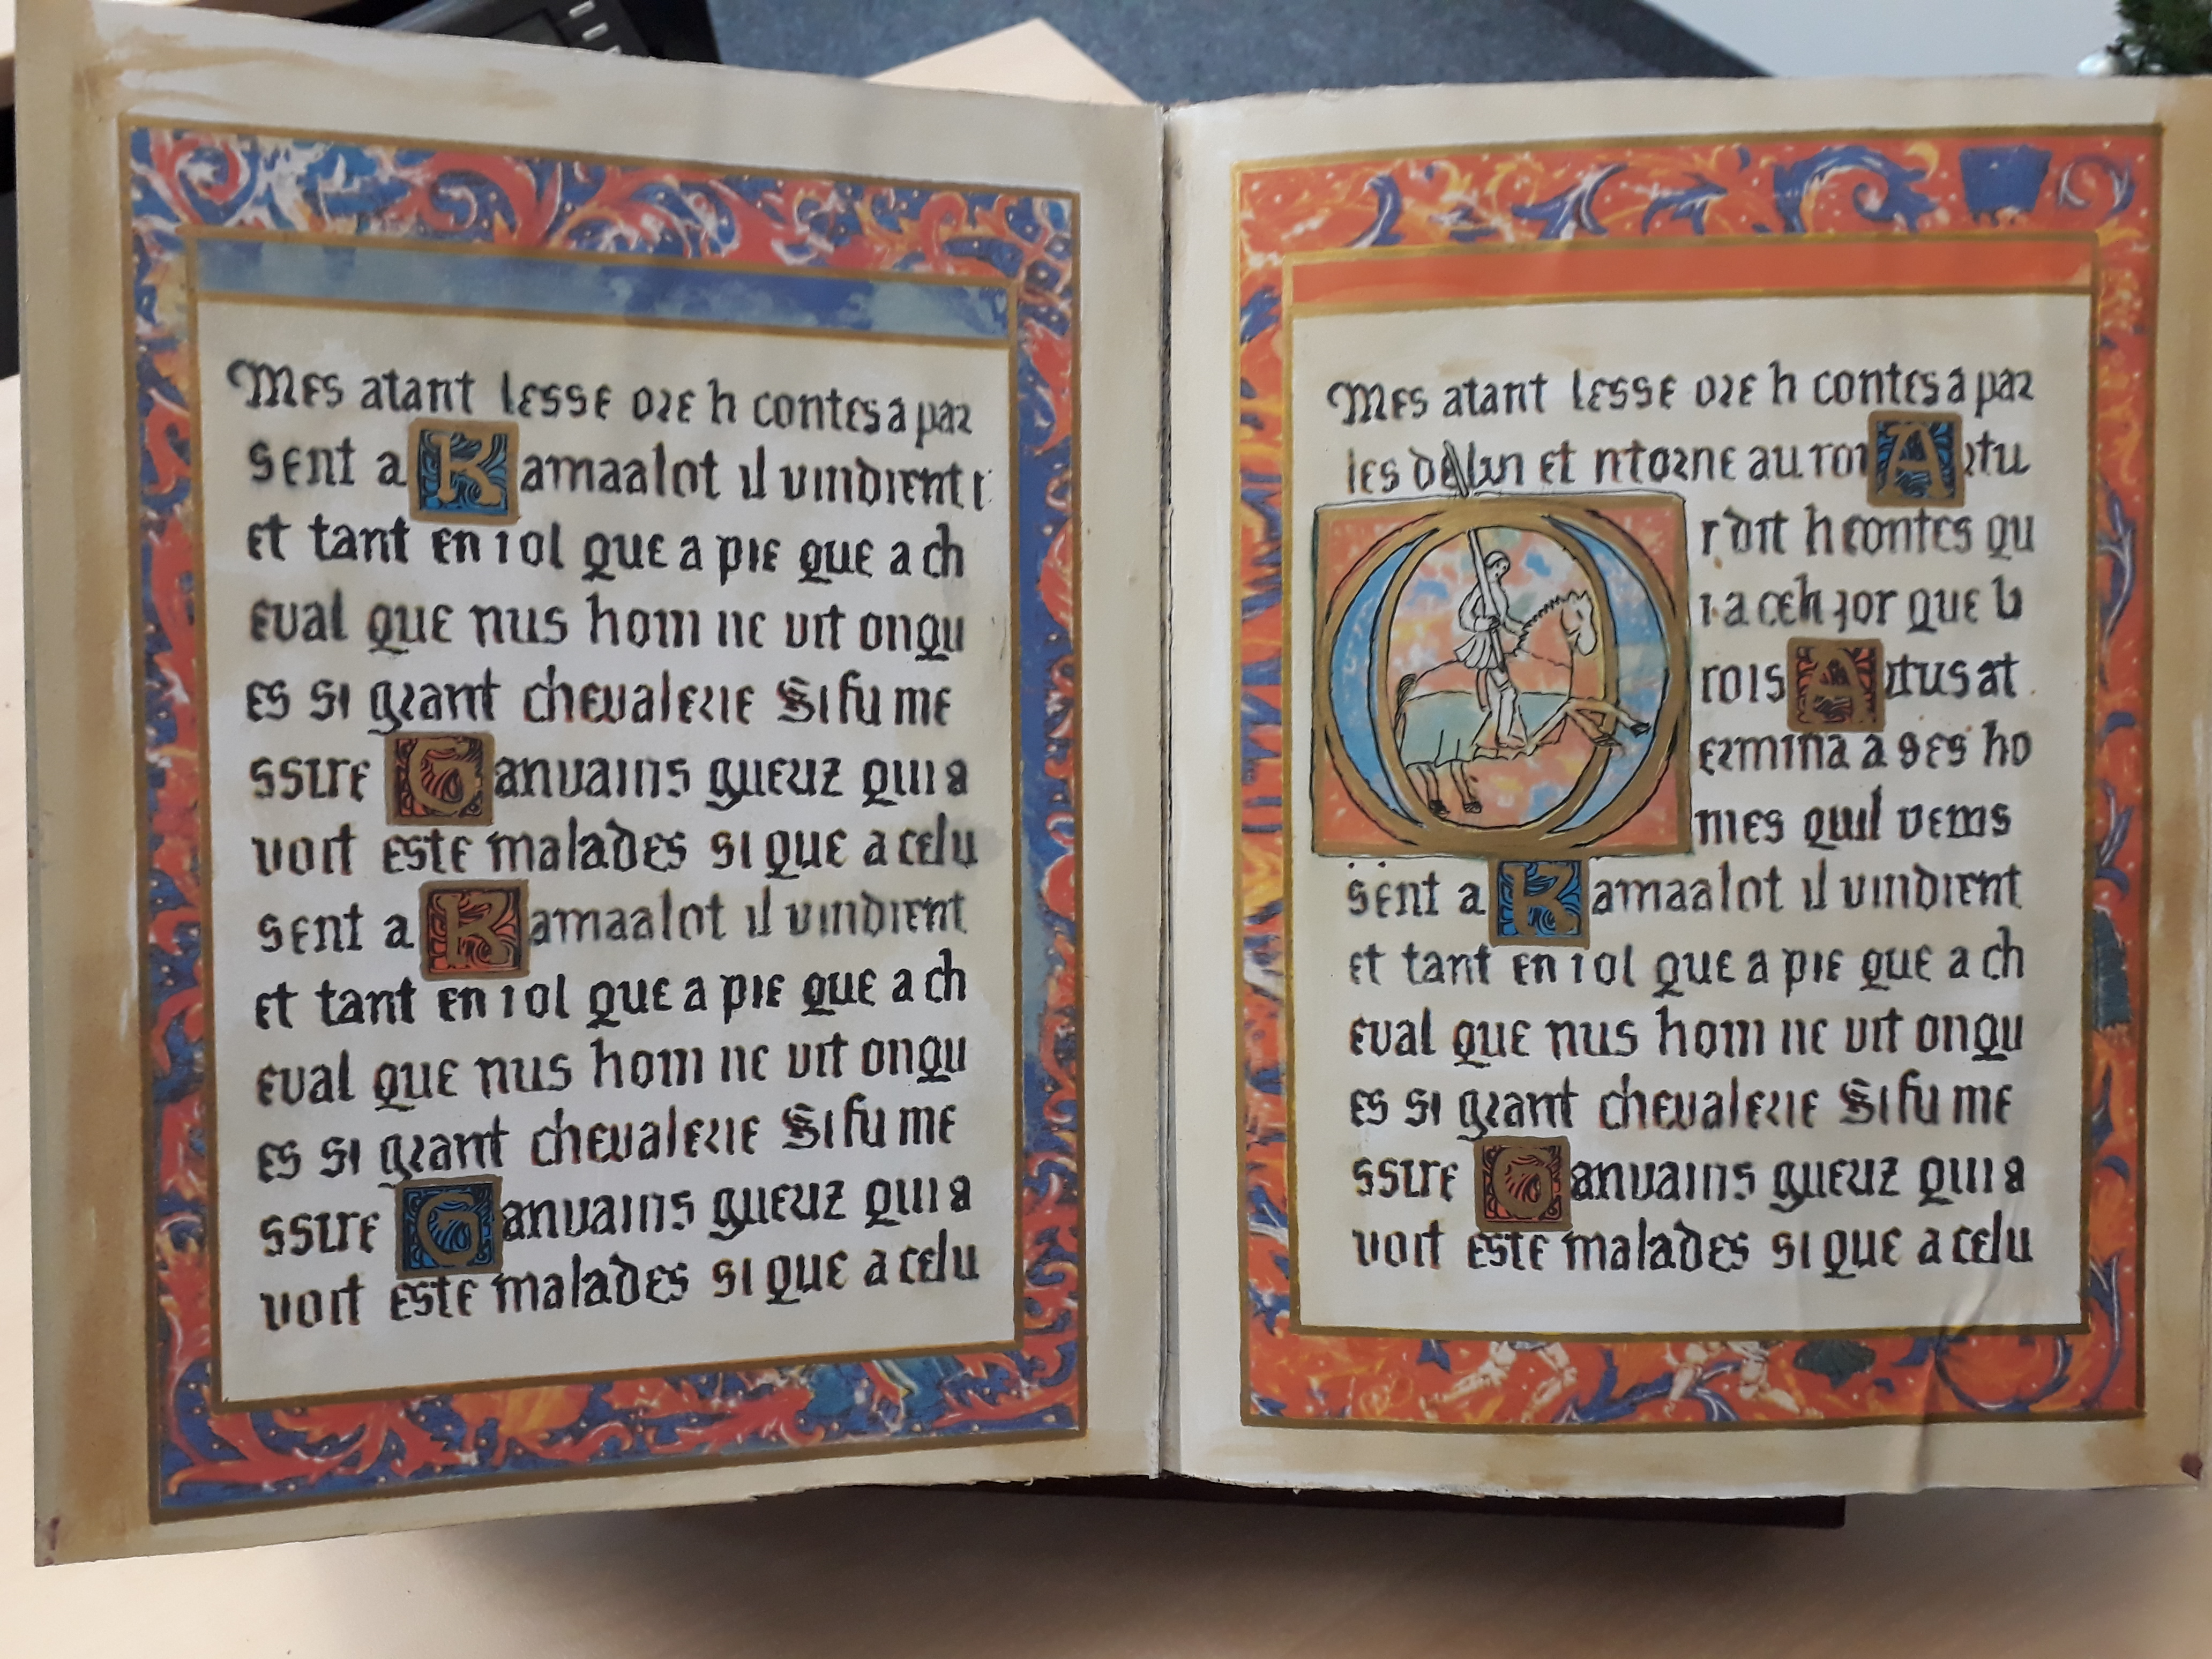 Mes atant lesse ore li contes a par
sent a Kamaalot il vindrent
et tant en i ot que a pie que a ch
eval que nus hom ne vit onqu
es si grant chevalerie Si fu me
ssire Gauvains gueriz qui a
voit este malades si que a celu
sent a Kamaalot il vindrent
et tant en i ot que a pie que a ch
eval que nus hom ne vit onqu
es si grant chevalerie Si fu me
ssire Gauvains gueriz qui a
voit este malades si que a celu
Mes atant lesse ore li contes a par
ler de lui et retorne au roi Artu
Or dit li contes qu
i a cel jor que li
rois Artus at
ermina a ses ho
mes quil venis
sent a Kamaalot il vindrent
et tant en i ot que a pie que a ch
eval que nus hom ne vit onqu
es si grant chevalerie Si fu me
ssire Gauvains gueriz qui a
voit este malades si que a celu